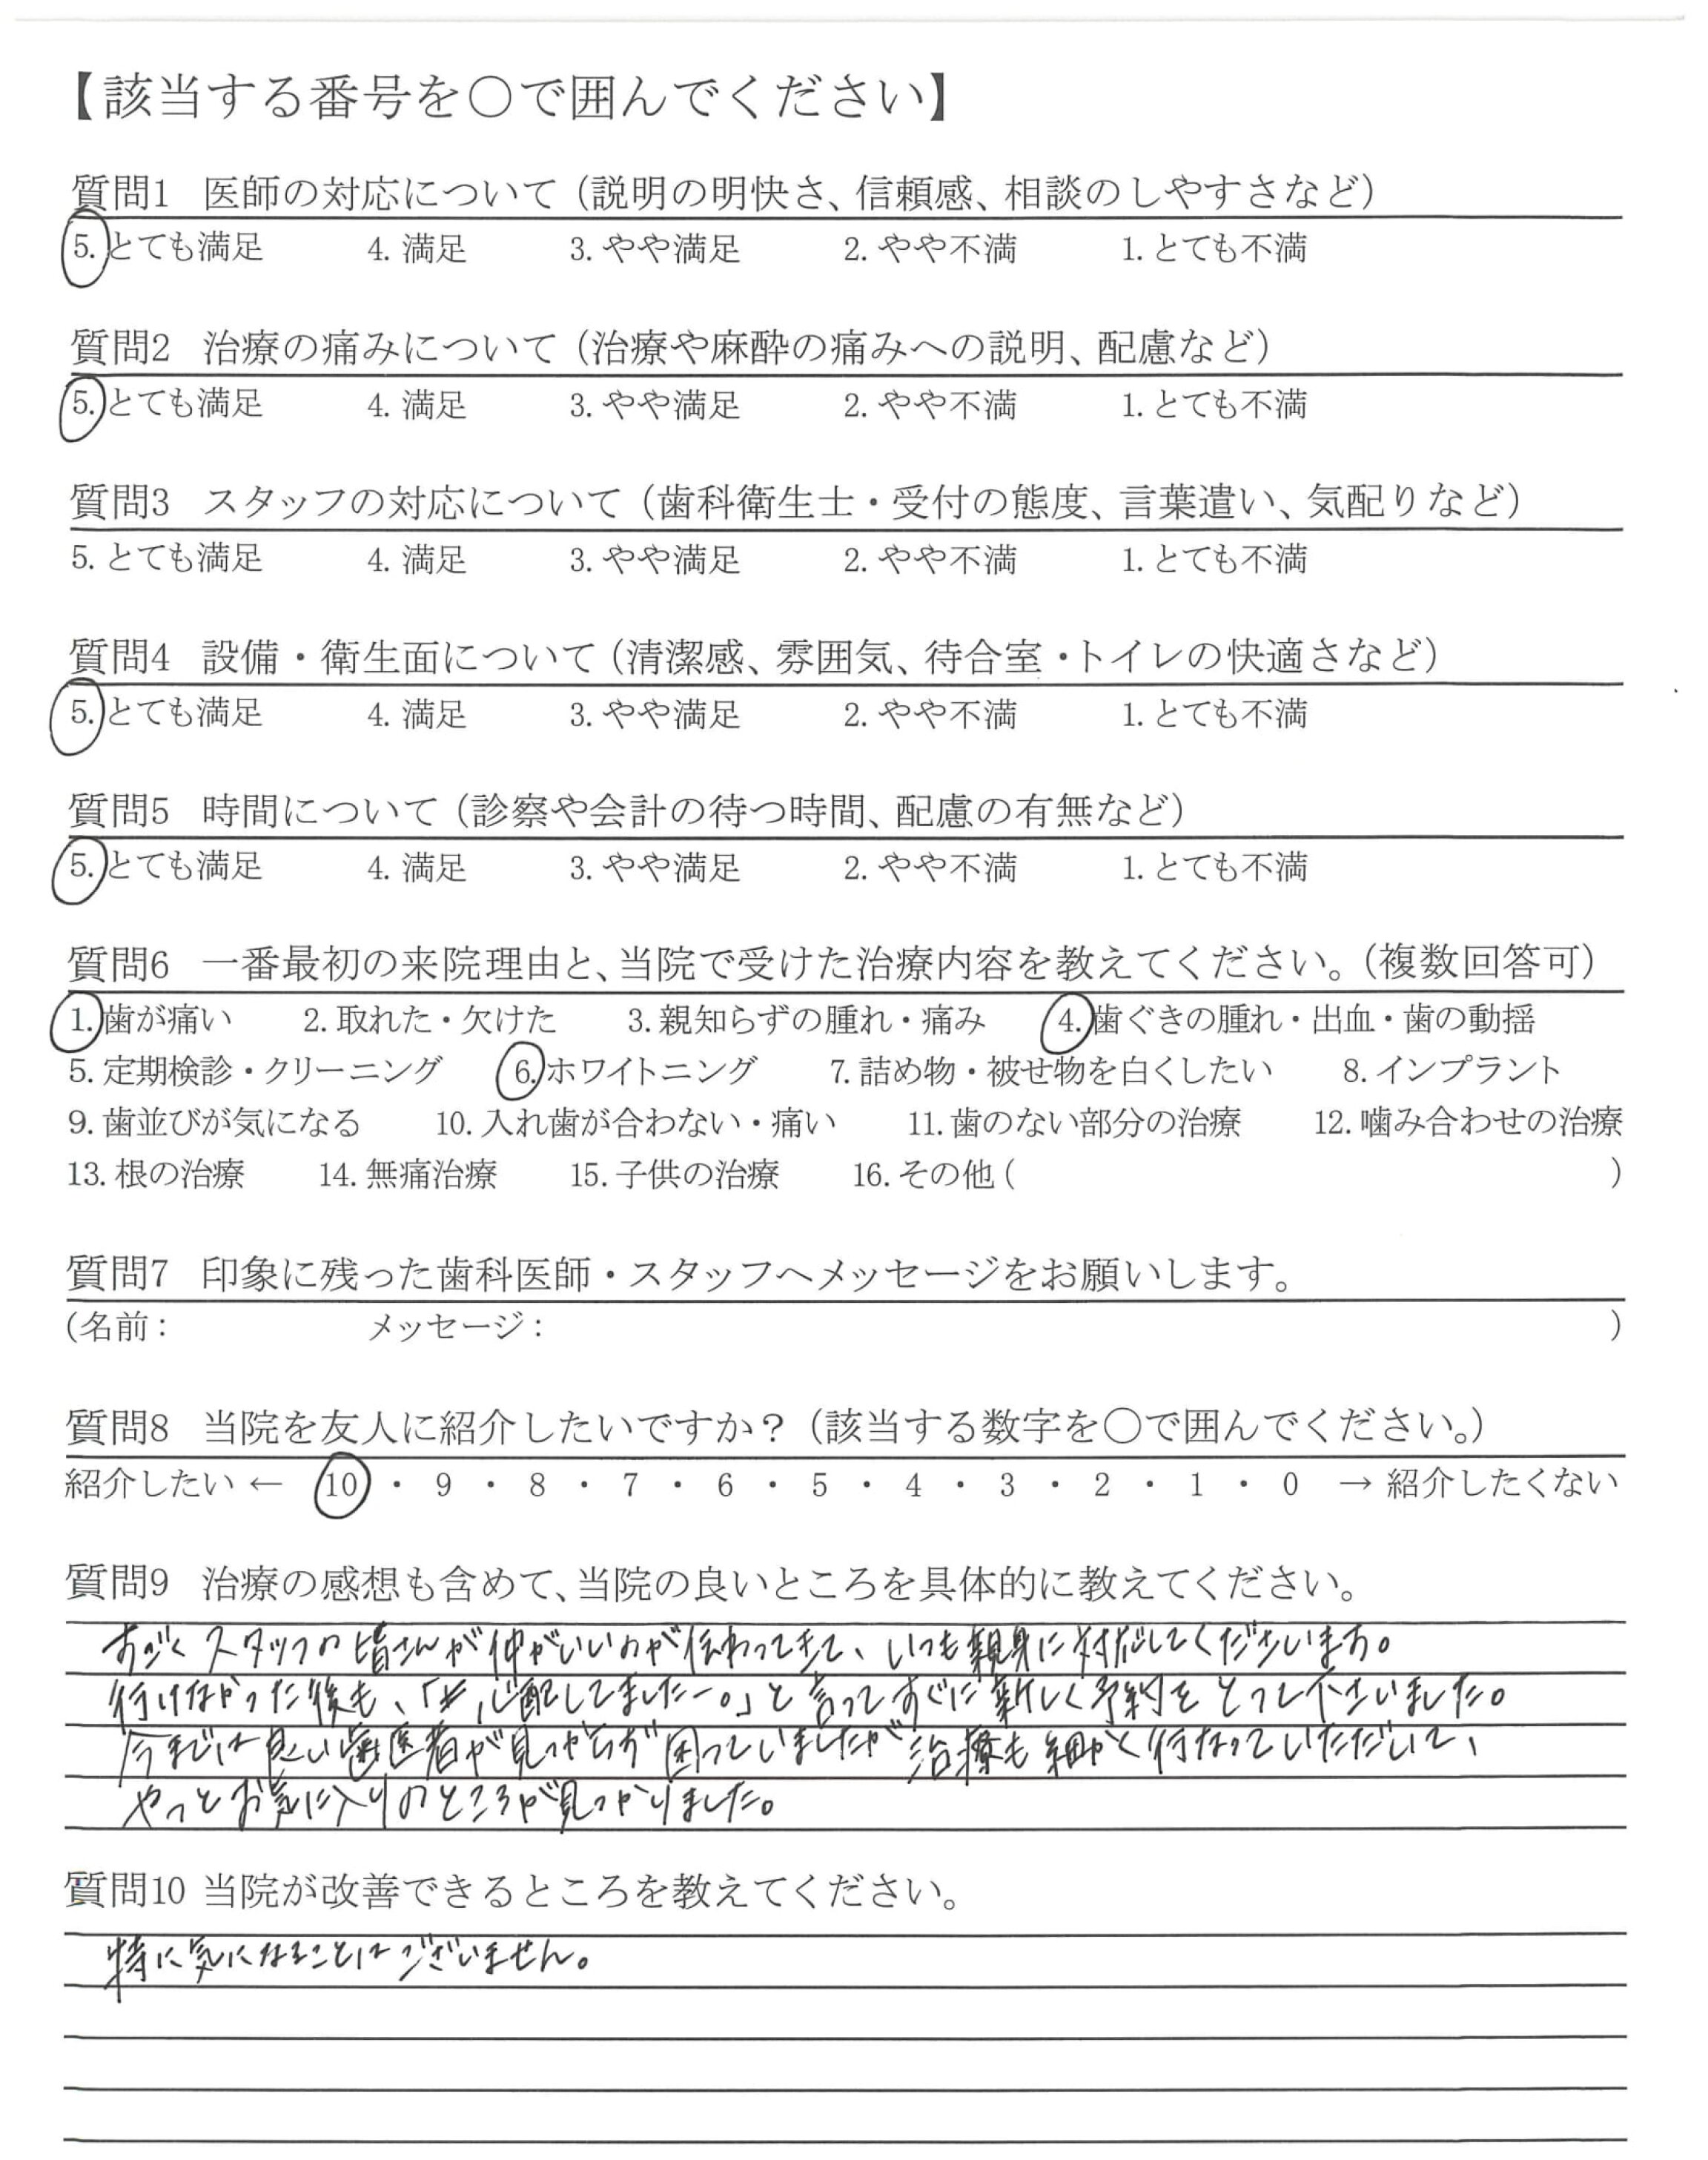 【該当する番号を○で囲んでください】
質問1 医師の対応について（説明の明快さ、信頼感、相談のしやすさなど）
5. とても満足 4. 満足 3. やや満足 2. やや不満 1. とても不満
質問2 治療の痛みについて（治療や麻酔の痛みへの説明、配慮など）
5. とても満足 4. 満足 3. やや満足 2. やや不満 1. とても不満
質問3 スタッフの対応について（歯科衛生士・受付の態度、言葉遣い、気配りなど）
5. とても満足 4. 満足 3. やや満足 2. やや不満 1. とても不満
質問4 設備・衛生面について（清潔感、雰囲気、待合室・トイレの快適さなど）
5. とても満足 4. 満足 3. やや満足 2. やや不満 1. とても不満
質問5 時間について（診察や会計の待つ時間、配慮の有無など）
5. とても満足 4. 満足 3. やや満足 2. やや不満 1. とても不満
質問6 一番最初の来院理由と、当院で受けた治療内容を教えてください。（複数回答可）
1. 歯が痛い 2. 取れた・欠けた 3. 親知らずの腫れ・痛み 4. 歯ぐきの腫れ・出血・歯の動揺
5. 定期検診・クリーニング 6. ホワイトニング 7. 詰め物・被せ物を白くしたい 8. インプラント
9. 歯並びが気になる 10. 入れ歯が合わない・痛い 11. 歯のない部分の治療 12. 噛み合わせの治療
13. 根の治療 14. 無痛治療 15. 子供の治療 16. その他（ ）
質問7 印象に残った歯科医師・スタッフへメッセージをお願いします。
（名前： メッセージ： ）
質問8 当院を友人に紹介したいですか？（該当する数字を○で囲んでください。）
紹介したい ← 10 ・ 9 ・ 8 ・ 7 ・ 6 ・ 5 ・ 4 ・ 3 ・ 2 ・ 1 ・ 0 → 紹介したくない
質問9 治療の感想も含めて、当院の良いところを具体的に教えてください。
すごくスタッフの皆さんが仲がいいのが伝わってきて、いつも親身に対応してくださいます。
行けなかった後も、「心配してましたー。」と言ってすぐに新しく予約をとって下さいました。
今までは良い歯医者が見つからず困っていましたが治療も細かく行なっていただいて、
やっとお気に入りのところが見つかりました。
質問10 当院が改善できるところを教えてください。
特に気になることはございません。